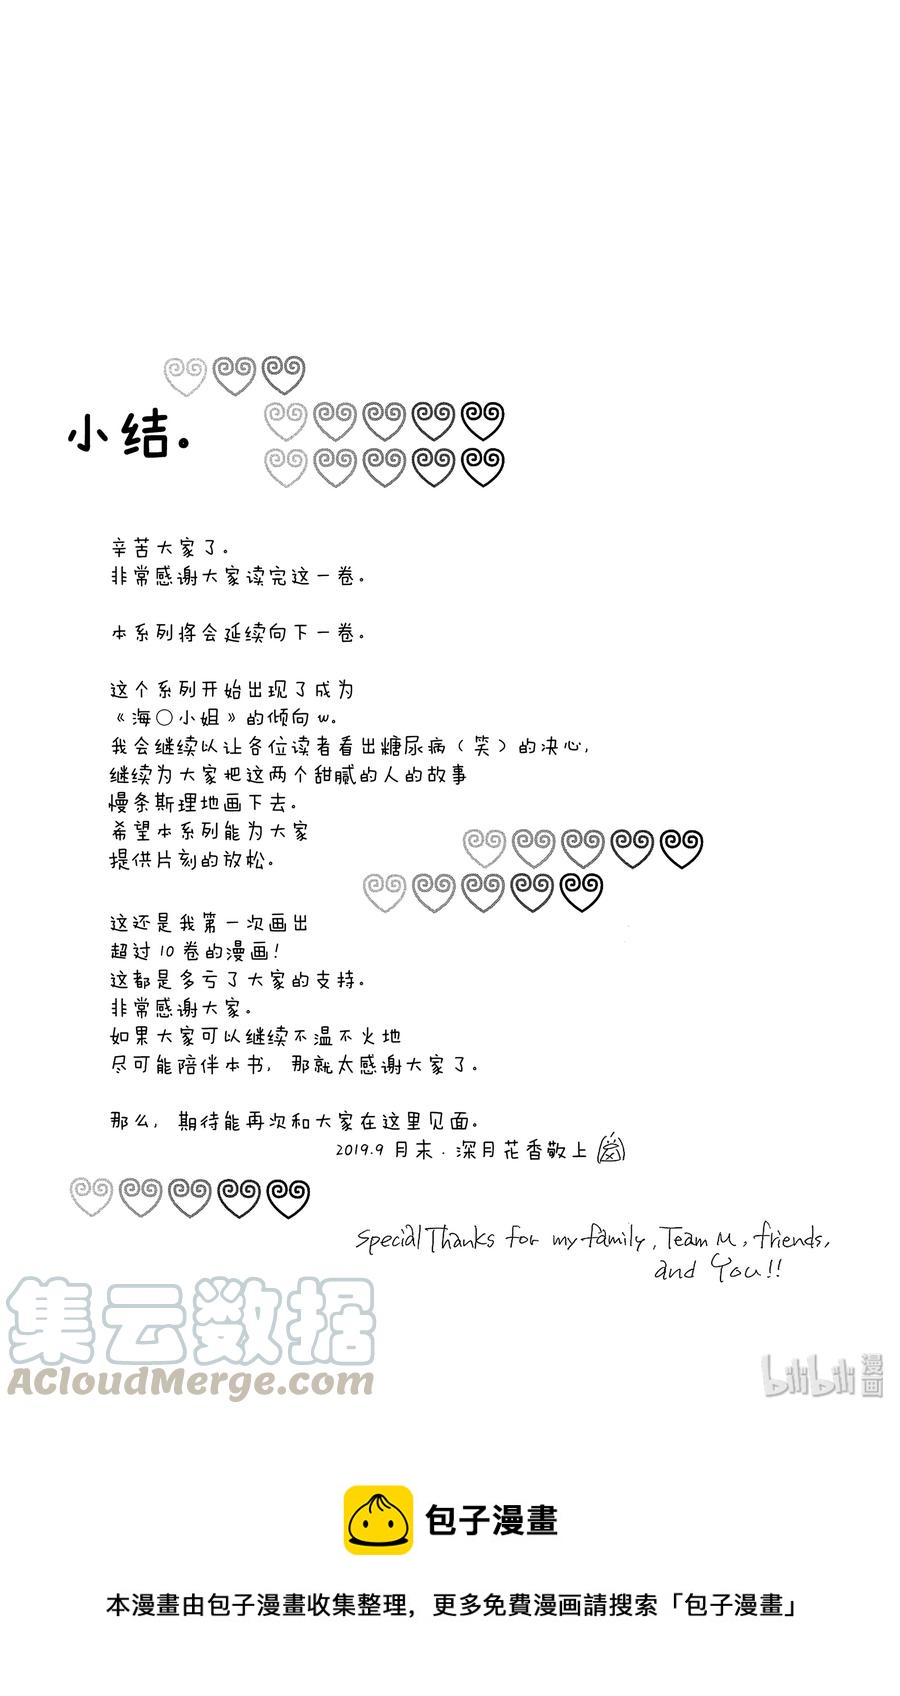 小结。
辛苦大家了。
非常感谢大家读完这一卷。
本系列将会延续向下一卷。
这个系列开始出现了成为
《海○小姐》的倾向w。
我会继续以让各位读者看出糖尿病（笑）的决心,
继续为大家把这两个甜腻的人的故事
慢条斯理地画下去。
希望本系列能为大家
提供片刻的放松。
这还是我第一次画出
超过10卷的漫画!
这都是多亏了大家的支持。
非常感谢大家。
如果大家可以继续不温不火地
尽可能陪伴本书, 那就太感谢大家了。
那么, 期待能再次和大家在这里见面。
2019.9 月末·深月花香敬上
Special Thanks for my family, Team M, friends,
and You!!
集云数据
ACloudMerge.com
bilibili 漫画
包子漫畫
本漫畫由包子漫畫收集整理，更多免費漫画請搜索「包子漫畫」